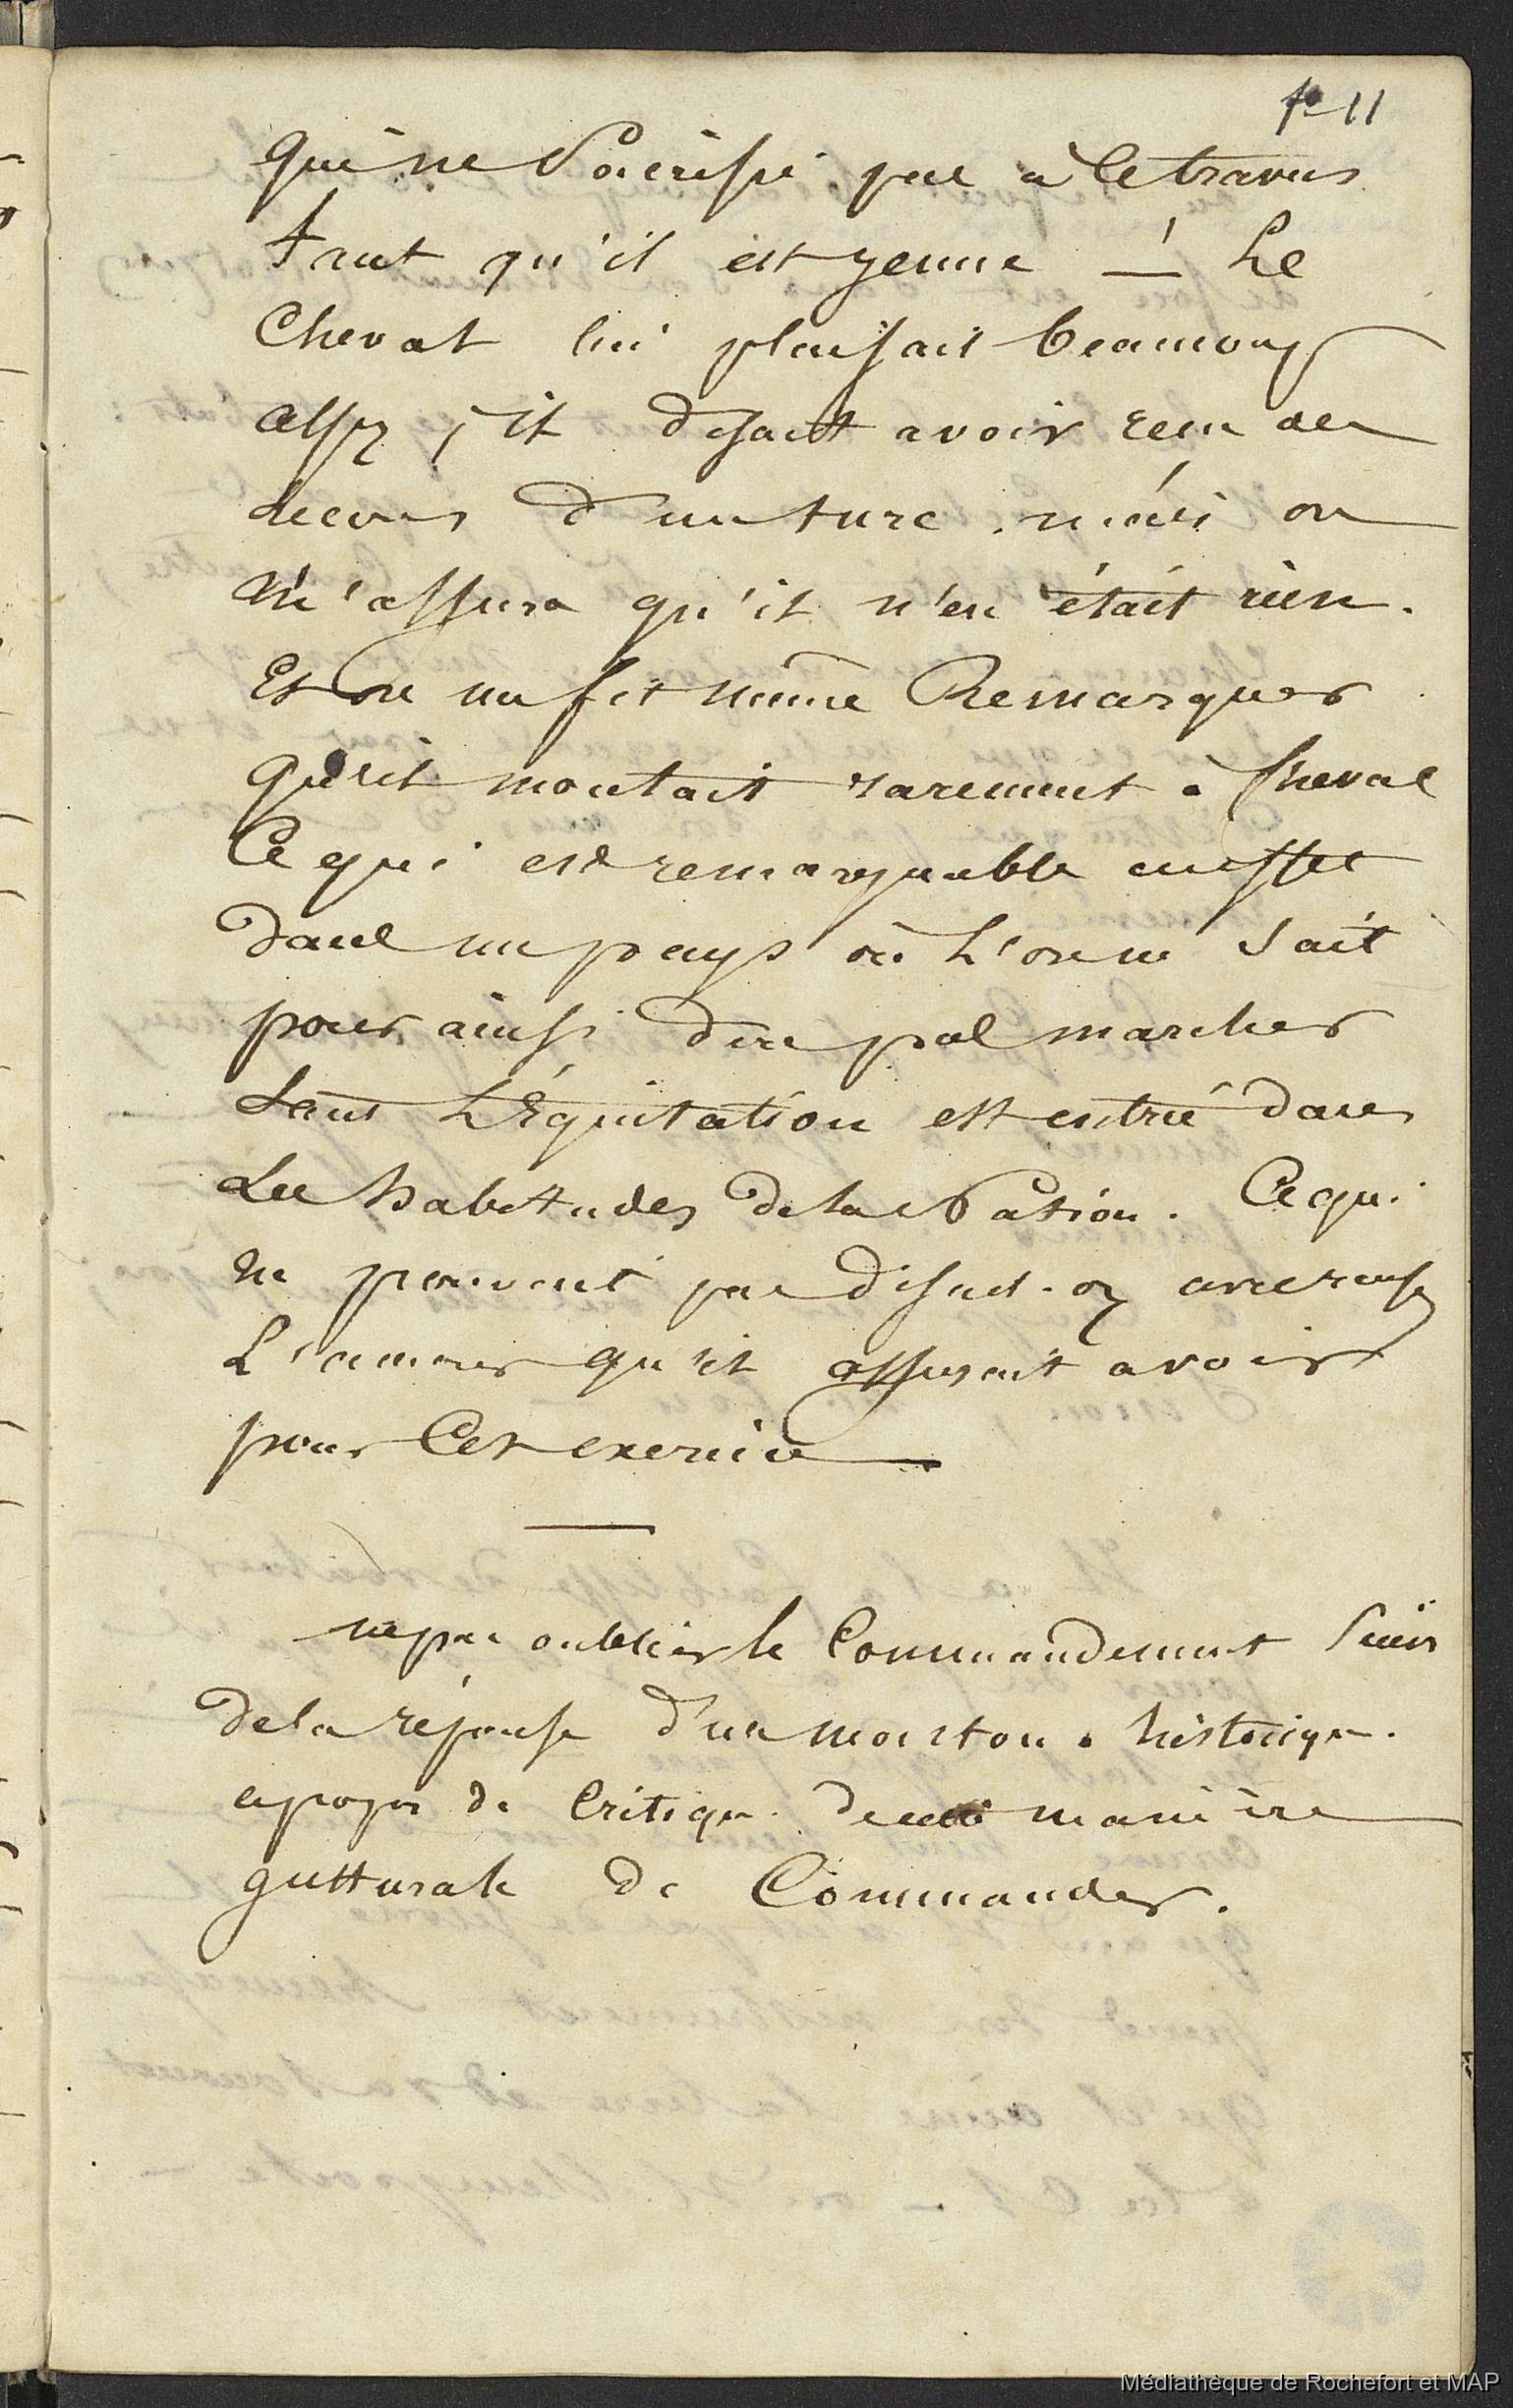 p 11
qui ne sacrifie pas à ce travers
tant qu'il est jeune — Le
Cheval lui plaisait beaucoup
assez, il disait avoir reçu des
lecons d'un turc, mais on
m'assura qu'il n'en était rien.
Et on me fit même Remarquer
qu'il montait rarement à cheval
Ce qui est remarquable en effet
dans un pays où L'on ne sait
pour ainsi dire pas marcher
tant L'Équitation est entrée dans
Les habitudes de la Nation. Ce qui
ne prouvait pas disait-on
L'amour qu'il assurait avoir
pour Cet exercice —
ne pas oublier le Commandement suivi
de la réponse d'un mouton. historique.
apropos de Critique de manière
gutturale de Commander.
Médiathèque de Rochefort et MAP